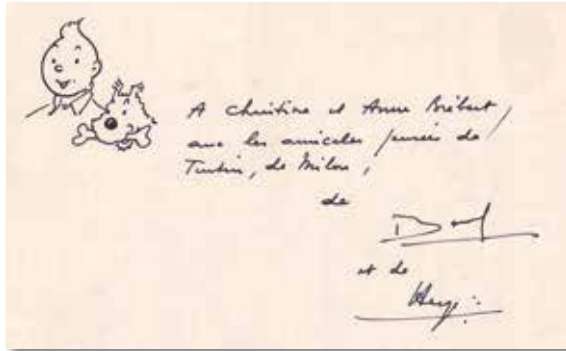 A Christine et Anne
avec les amicales pensées de
Tintin, de Milou,
de
et de
Hergé